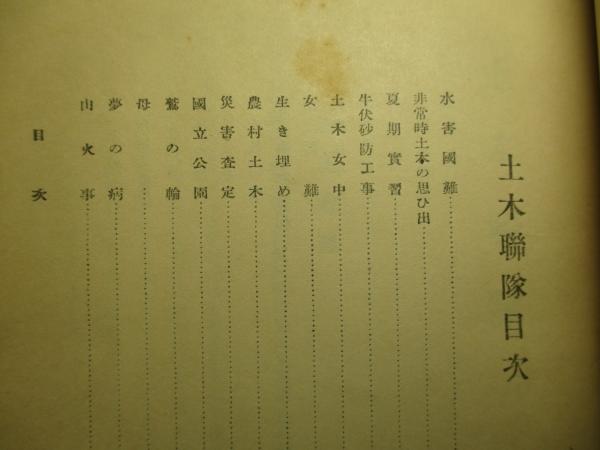 土木聯隊目次
水害國難
非常時土木の思ひ出
夏期實習
牛伏砂防工事
土木女中
女難
生き埋め
農村土木
災害査定
國立公園
鷲の輪
母
夢の病
山火事
目次